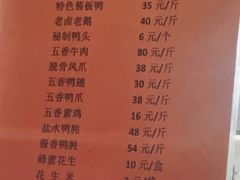 特色酱板鸭 35元/斤
老卤老鹅 40元/斤
秘制鸭头 6元/个
五香牛肉 80元/斤
脱骨凤爪 38元/斤
五香鸭翅 30元/斤
五香鸭爪 38元/斤
五香素鸡 16元/斤
盐水鸭肫 48元/斤
酱香鸭肫 54元/斤
蜂蜜花生 10元/盒
花生米